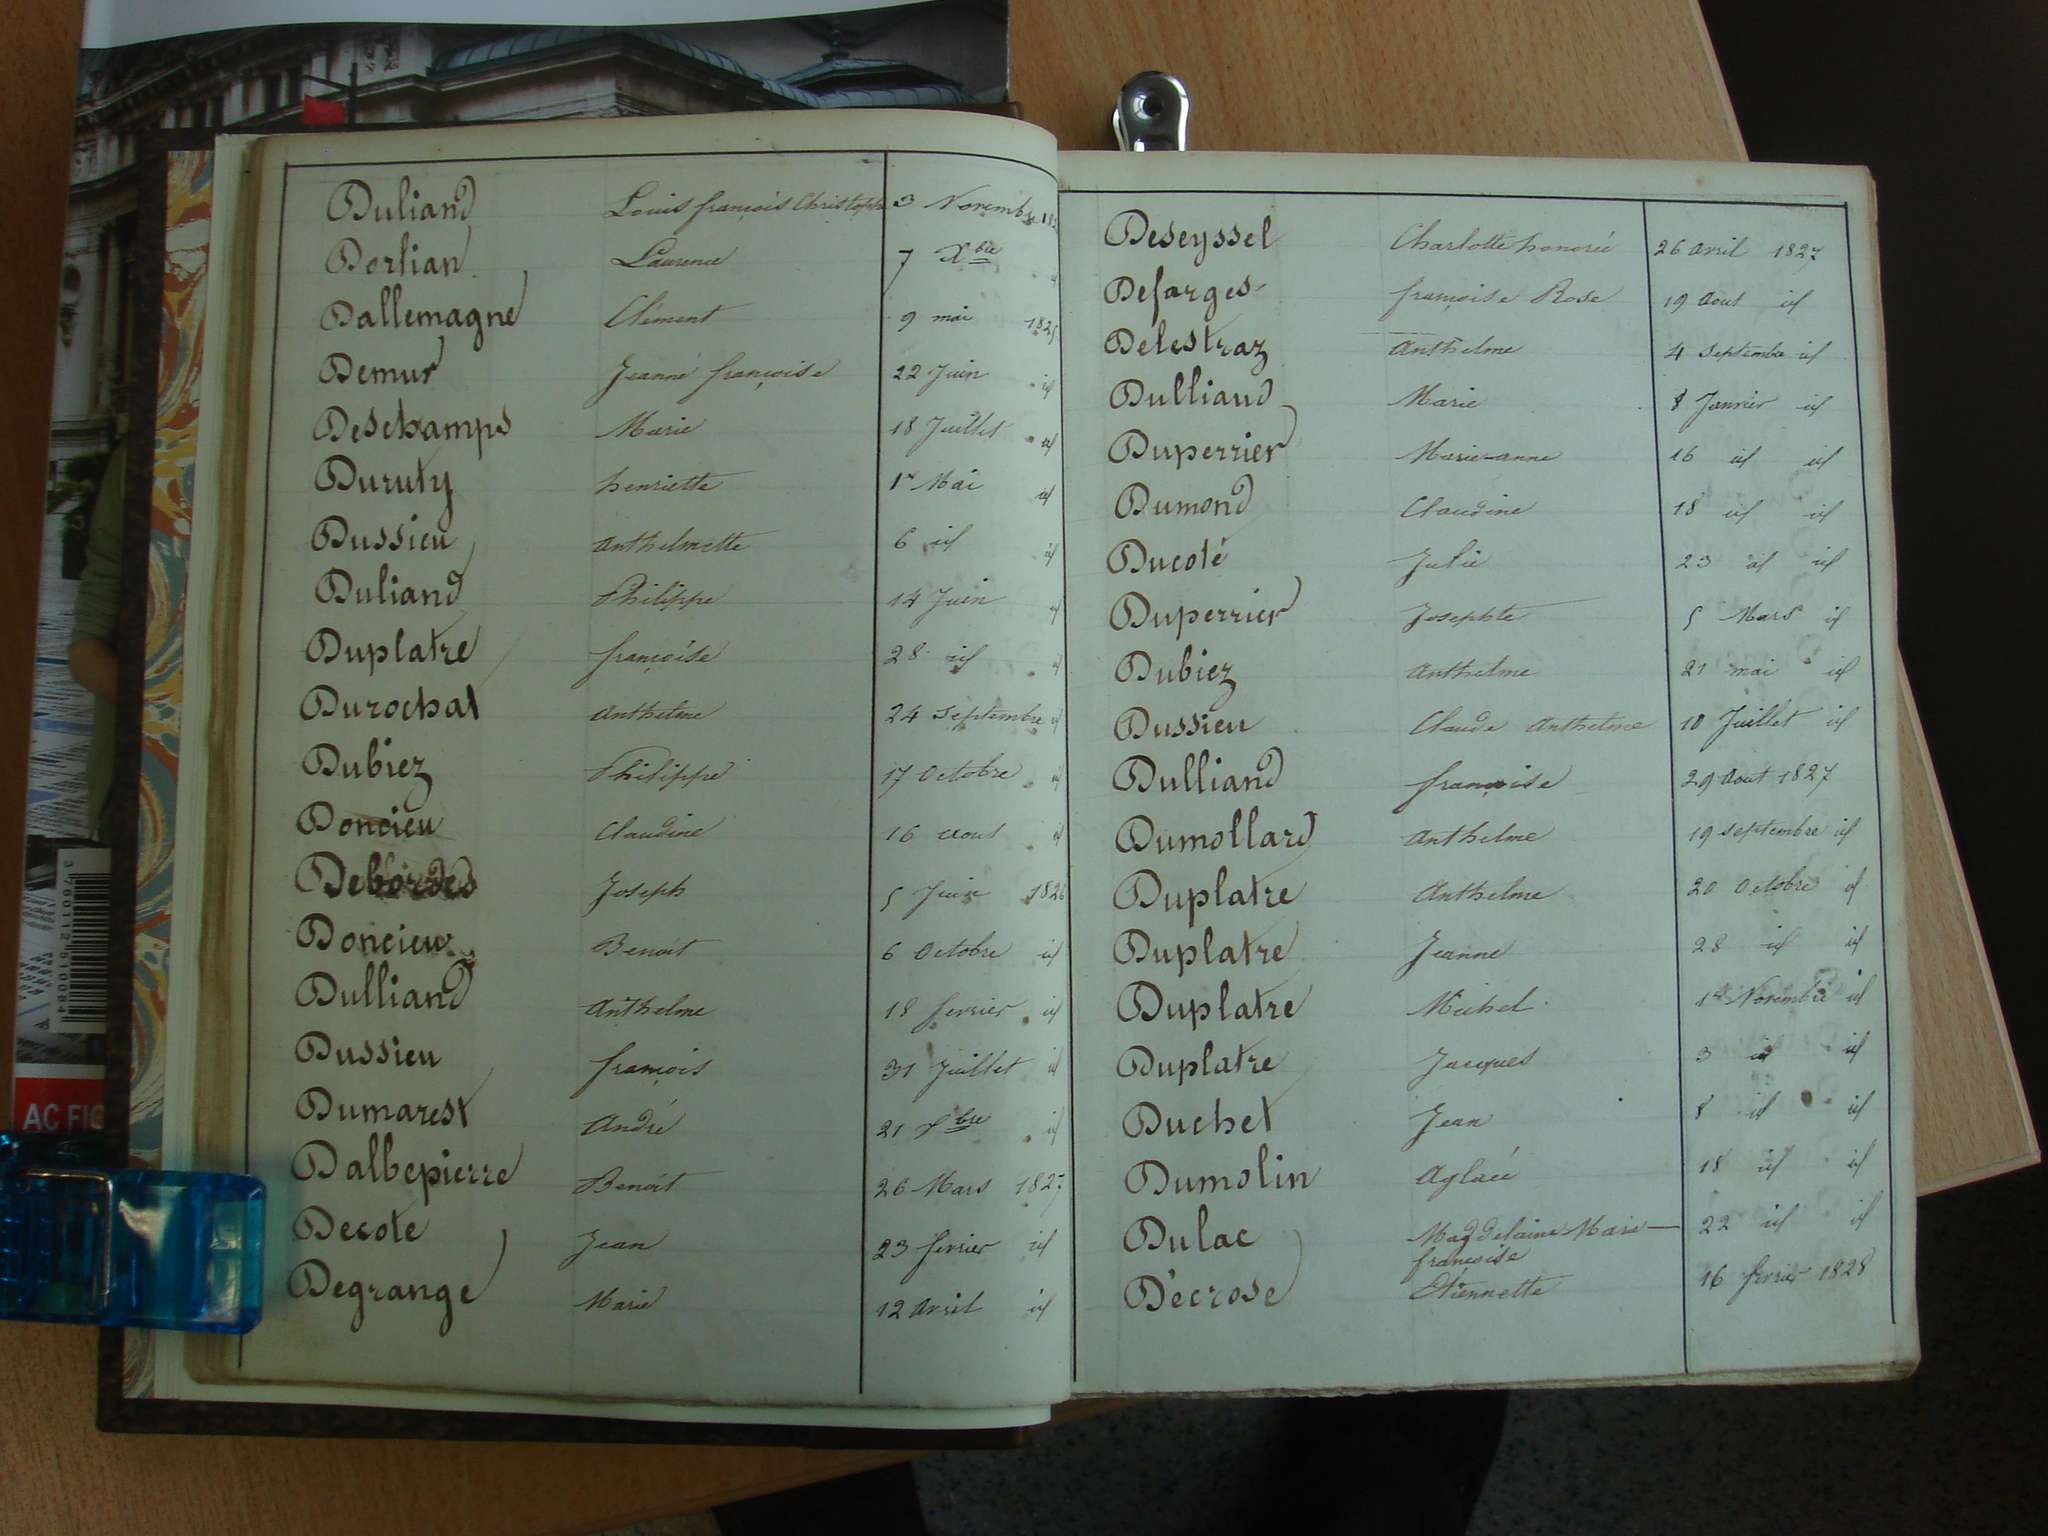 Duliand Louis françois Christophe 3 Novembre
Dorlian Laurence 7 Xbre
Dallemagne Clément 9 mai 1825
Demur Jeanne françoise 22 Juin id
Deschamps Marie 18 Juillet id
Duruty henriette 1er Mai id
Dussieu Anthelmette 6 id id
Duliand Philippe 14 Juin id
Duplatre françoise 28 id id
Durochat Anthelme 24 Septembre id
Dubiez Philippe 17 Octobre id
Doncieu Claudine 16 aout id
Debordes Joseph 5 Juin 1826
Doncieux Benoit 6 Octobre id
Dulliand Anthelme 18 fevrier id
Dussieu françois 31 Juillet id
Dumarest André 21 Xbre id
Dalbepierre Benoit 26 Mars 1827
Decote Jean 23 fevrier id
Degrange Marie 12 Avril id
Deseyssel Charlotte honorée 26 Avril 1827
Defarges françoise Rose 19 Aout id
Delestraz Anthelme 4 Septembre id
Dulliand Marie 8 Janvier id
Duperrier Marie-anne 16 id id
Dumond Claudine 18 id id
Ducoté Julie 23 id id
Duperrier Josephte 5 Mars id
Dubiez Anthelme 21 mai id
Dussieu Claude Anthelme 10 Juillet id
Dulliand françoise 29 Aout 1827
Dumollard Anthelme 19 septembre id
Duplatre Anthelme 20 Octobre id
Duplatre Jeanne 28 id id
Duplatre Michel 1er Novembre id
Duplatre Jacques 3 id id
Duchet Jean 8 id id
Dumolin Aglaée 18 id id
Dulac Magdelaine Marie 22 id id
françoise
Décrose Etiennette 16 fevrier 1828
AC FIG
3 780112 510084